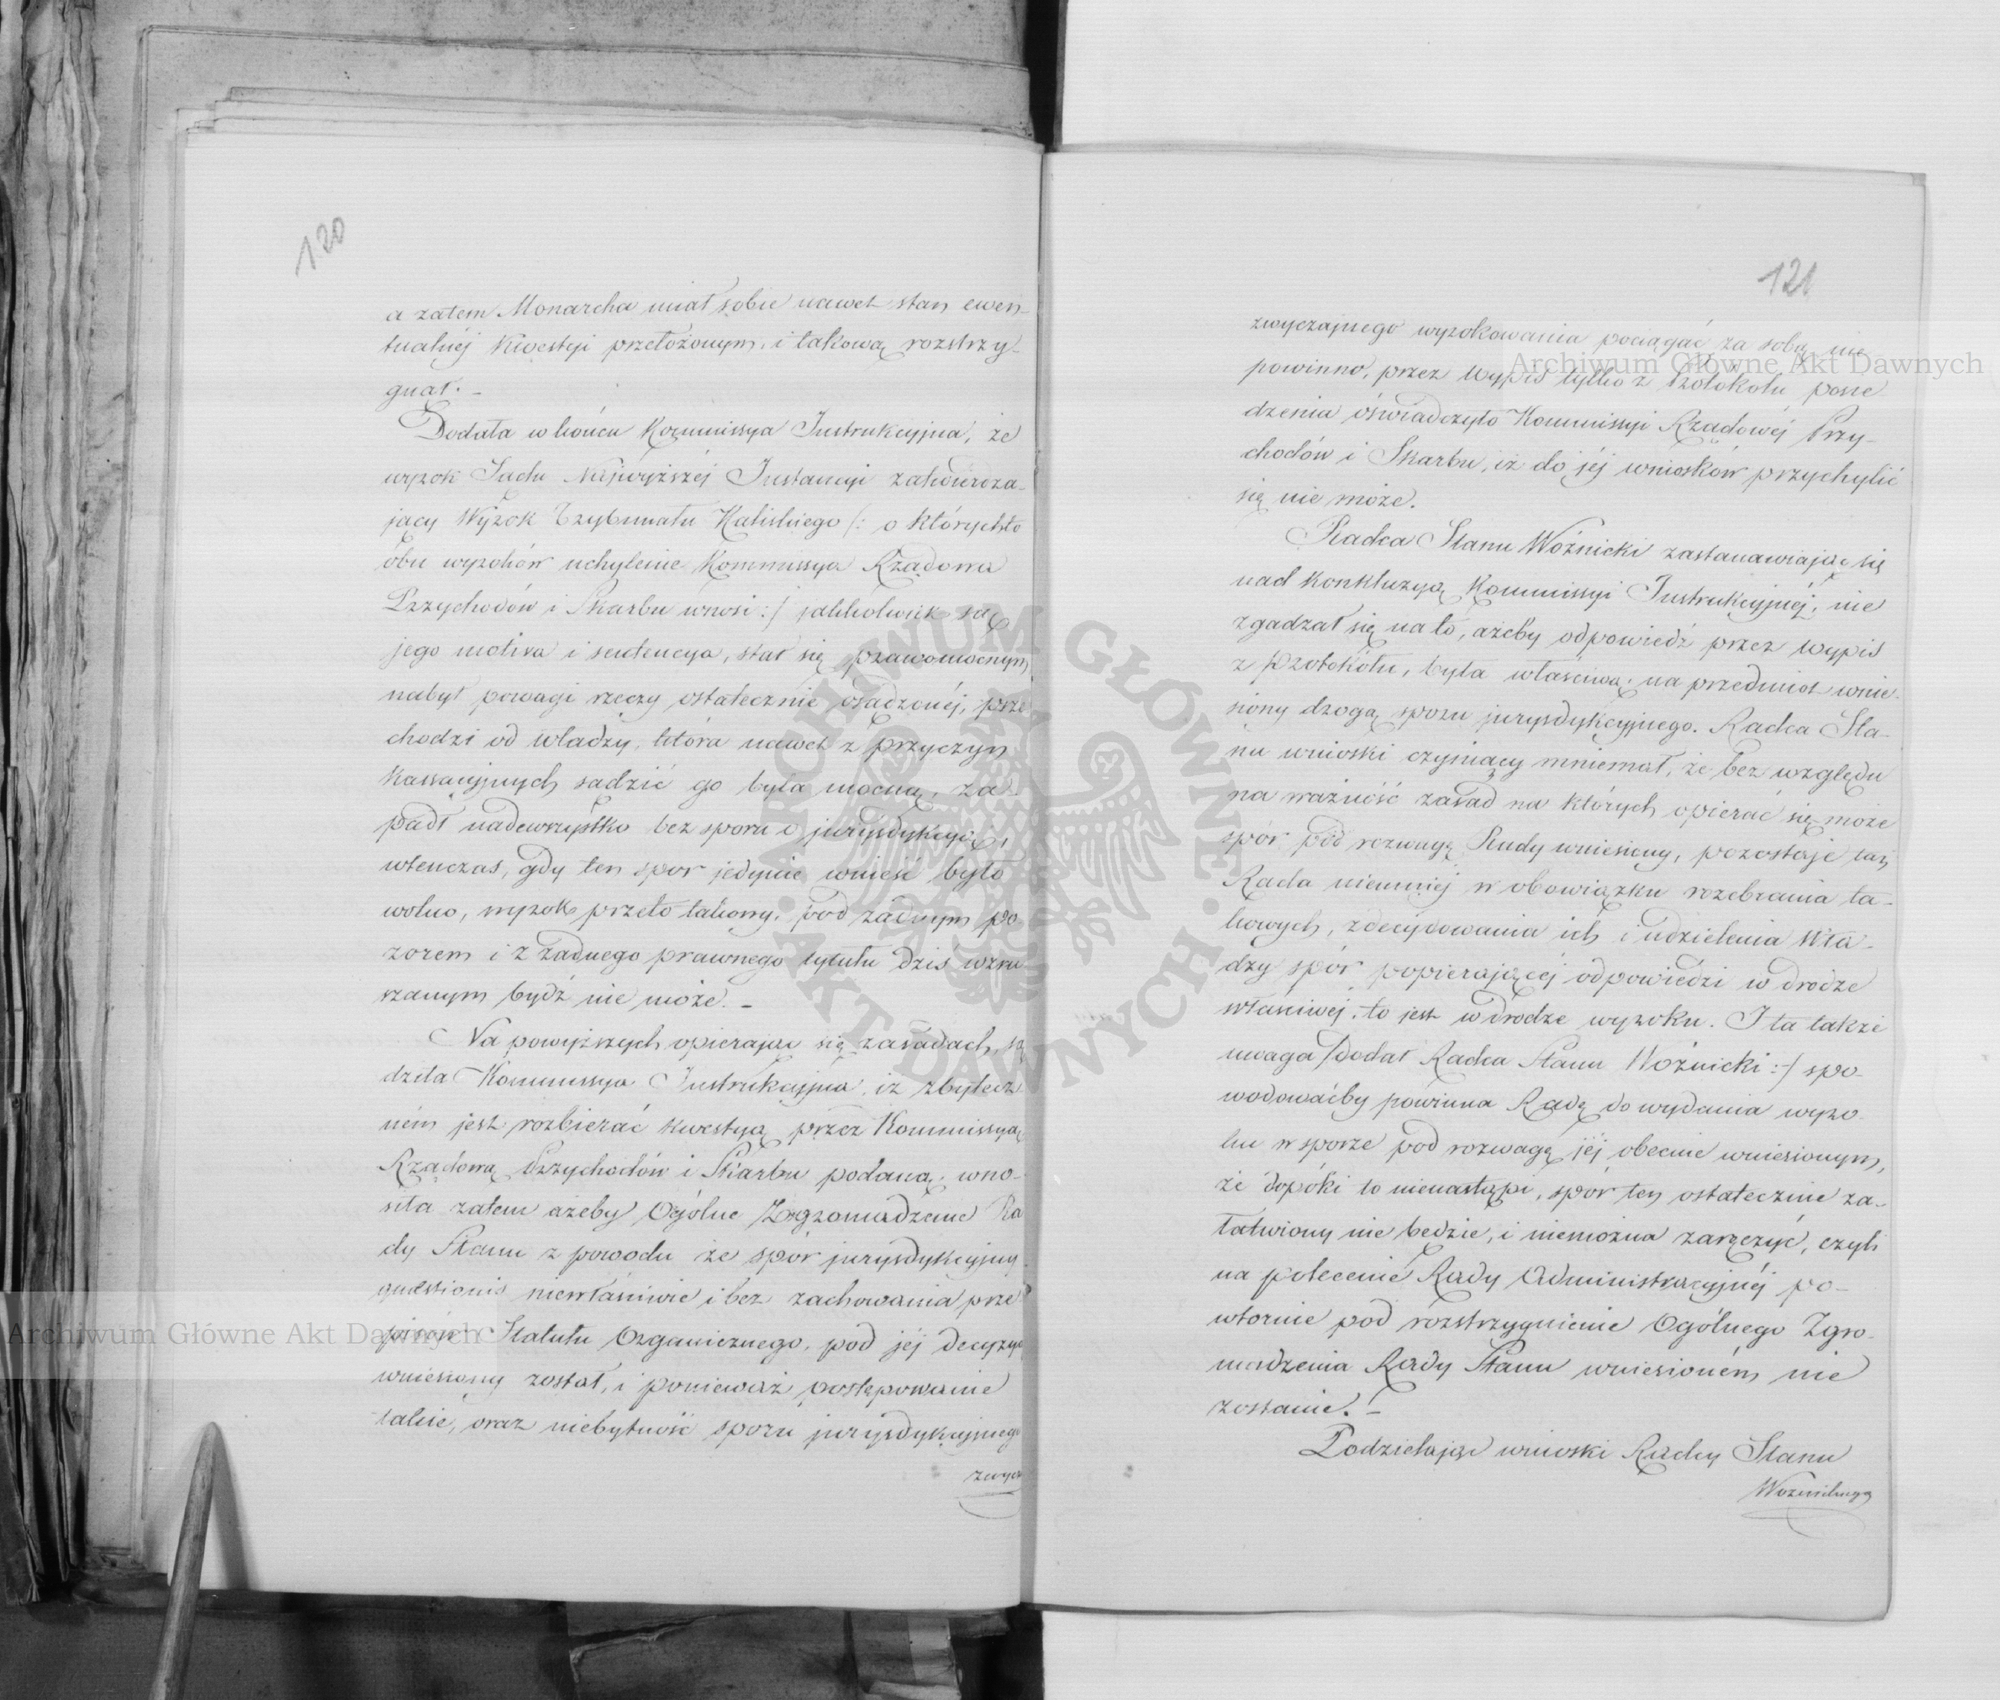 120
a zatem Monarcha miał sobie nawet stan ewen-
tualnéj kwestyi przełożonym, i takową rozstrzy-
gnął. –
Dodała w końcu Kommissya Instrukcyjna, że
wyrok Sądu Najwyższéj Instancyi zatwierdza-
jący Wyrok Trybunału Kaliskiego /: o których to
obu wyroków uchylenie Kommissya Rządowa
Przychodów i Skarbu wnosi :/ jakkolwiek są
jego motiva i sentencya, stał się prawomocnym
nabył powagi rzeczy ostatecznie osądzonéj, prze
chodzi od władzy, która nawet z przyczyn
Kassacyjnych sądzić go była mocną, za-
padł nadewszystko bez sporu o jurysdykcyą,
wtenczas, gdy ten spor jedynie wnieść było
wolno, wyrok przeto takowy, pod żadnym po
zorem i z żadnego prawnego tytułu dziś wzru
szanym bydź nie może. –
Na powyższych opierając się zasadach, są
dziła Kommissya Instrukcyjna, iż zbytecz
ném jest rozbierać kwestyą przez Kommissyą
Rządową Przychodów i Skarbu podaną, wno-
siła zatem ażeby Ogólne Zgromadzenie Ra
dy Stanu z powodu że spór jurysdykcyjny
quaestionis niewłaściwie i bez zachowania prze
pisów Statutu Organicznego, pod jéj decyzyą
wniesiony został, i ponieważ postępowanie
takie, oraz niebytność sporu jurysdykcyjnego
zwycz
121
zwyczajnego wyrokowania pociągać za sobą nie
powinno, przez wypis tylko z Protokołu posie
dzenia oświadczyło Kommissyi Rządowéj Przy-
chodów i Skarbu, iż do jéj wniosków przychylić
się nie może.
Radca Stanu Woźnicki zastanawiając się
nad konkluzyą Kommissyi Instrukcyjnéj, nie
zgadzał się na to, ażeby odpowiedź przez wypis
z protokołu, była właściwą, na przedmiot wnie-
siony drogą sporu jurysdykcyjnego. Radca Sta-
nu wnioski czyniący mniemał, że bez względu
na ważność zasad na których opierać się może
spór pod rozwagę Rady wniesiony, pozostaje taż
Rada niemniéj w obowiązku rozebrania ta-
kowych, zdecydowania ich i udzielenia Wła-
dzy spór popierającéj odpowiedzi w drodze
właściwéj, to jest w drodze wyroku. I ta także
uwaga /: dodał Radca Stanu Woźnicki :/ spo-
wodowaćby powinna Radę do wydania wyro
ku w sporze pod rozwagę jéj obecnie wniesionym,
że dopóki to nienastąpi, spór ten ostatecznie za-
łatwiony nie będzie, i niemożna zaręczyć, czyli
na polecenie Rady Administracyjnéj po-
wtórnie pod rozstrzygnienie Ogólnego Zgro-
madzenia Rady Stanu wniesioném nie
zostanie. –
Podzielając wnioski Radcy Stanu
Woźnickiego
Archiwum Główne Akt Dawnych
Archiwum Główne Akt Dawnych
ARCHIWUM GŁÓWNE
AKT DAWNYCH